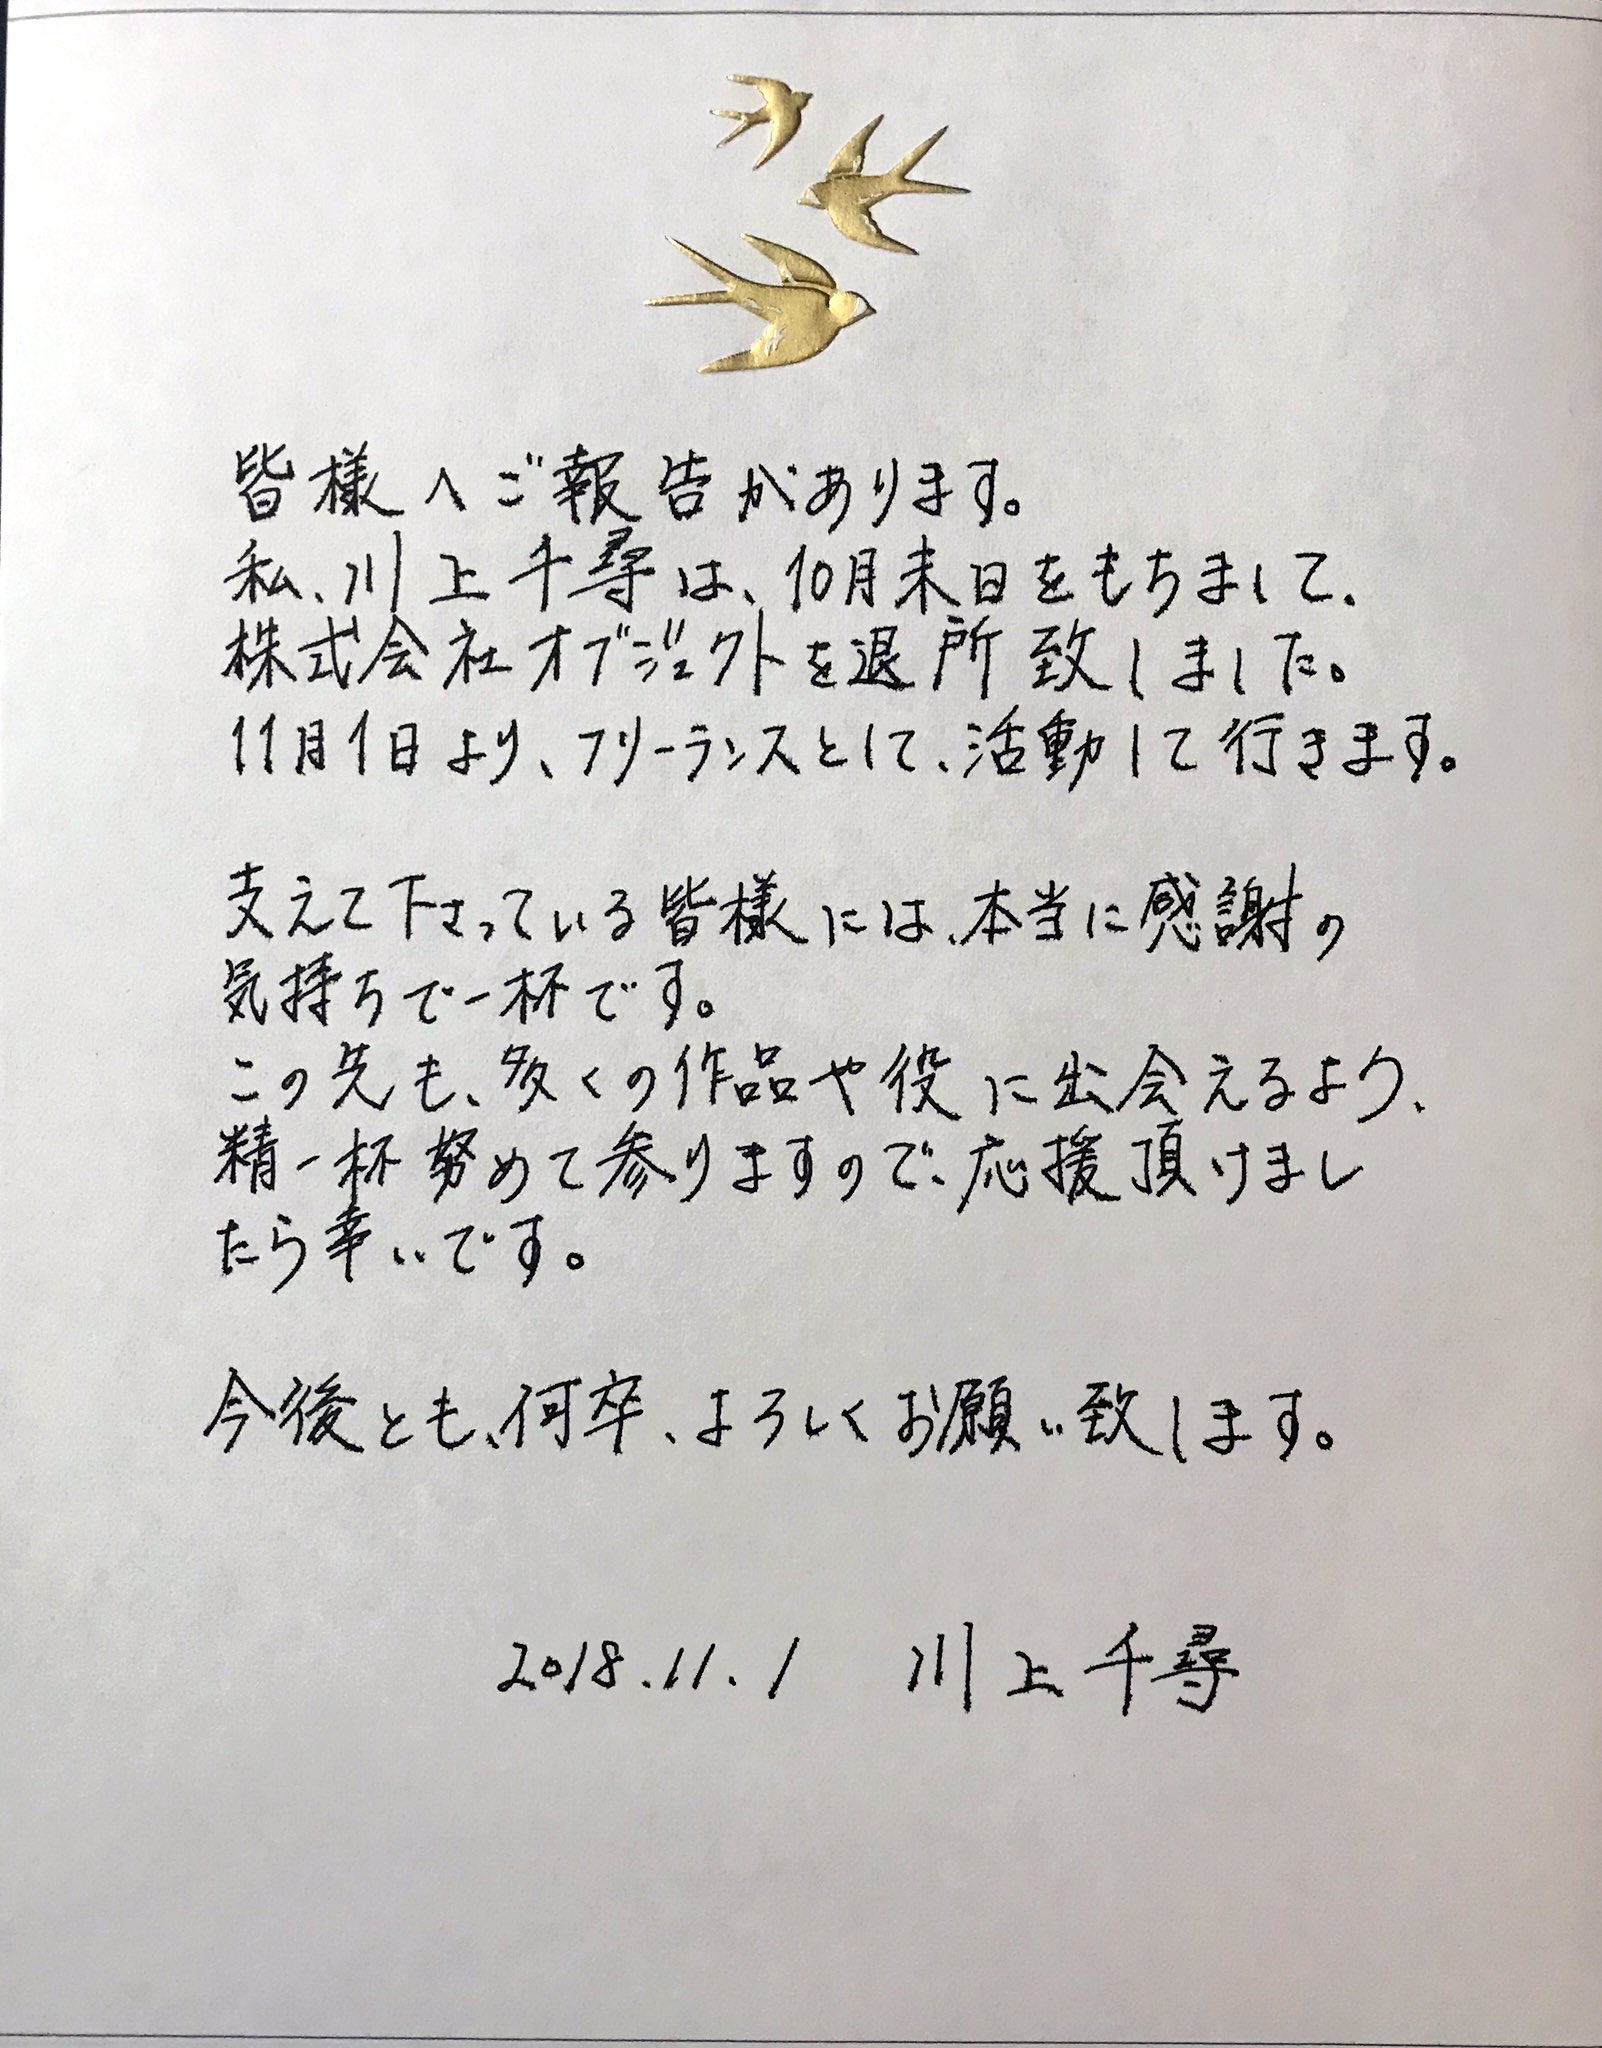 皆様へご報告があります。
私、川上千尋は、10月末日をもちまして、
株式会社オブジェクトを退所致しました。
11月1日より、フリーランスとして、活動して行きます。
支えて下さっている皆様には、本当に感謝の
気持ちで一杯です。
この先も、多くの作品や役に出会えるよう、
精一杯努めて参りますので、応援頂けまし
たら幸いです。
今後とも、何卒、よろしくお願い致します。
2018.11.1 川上千尋